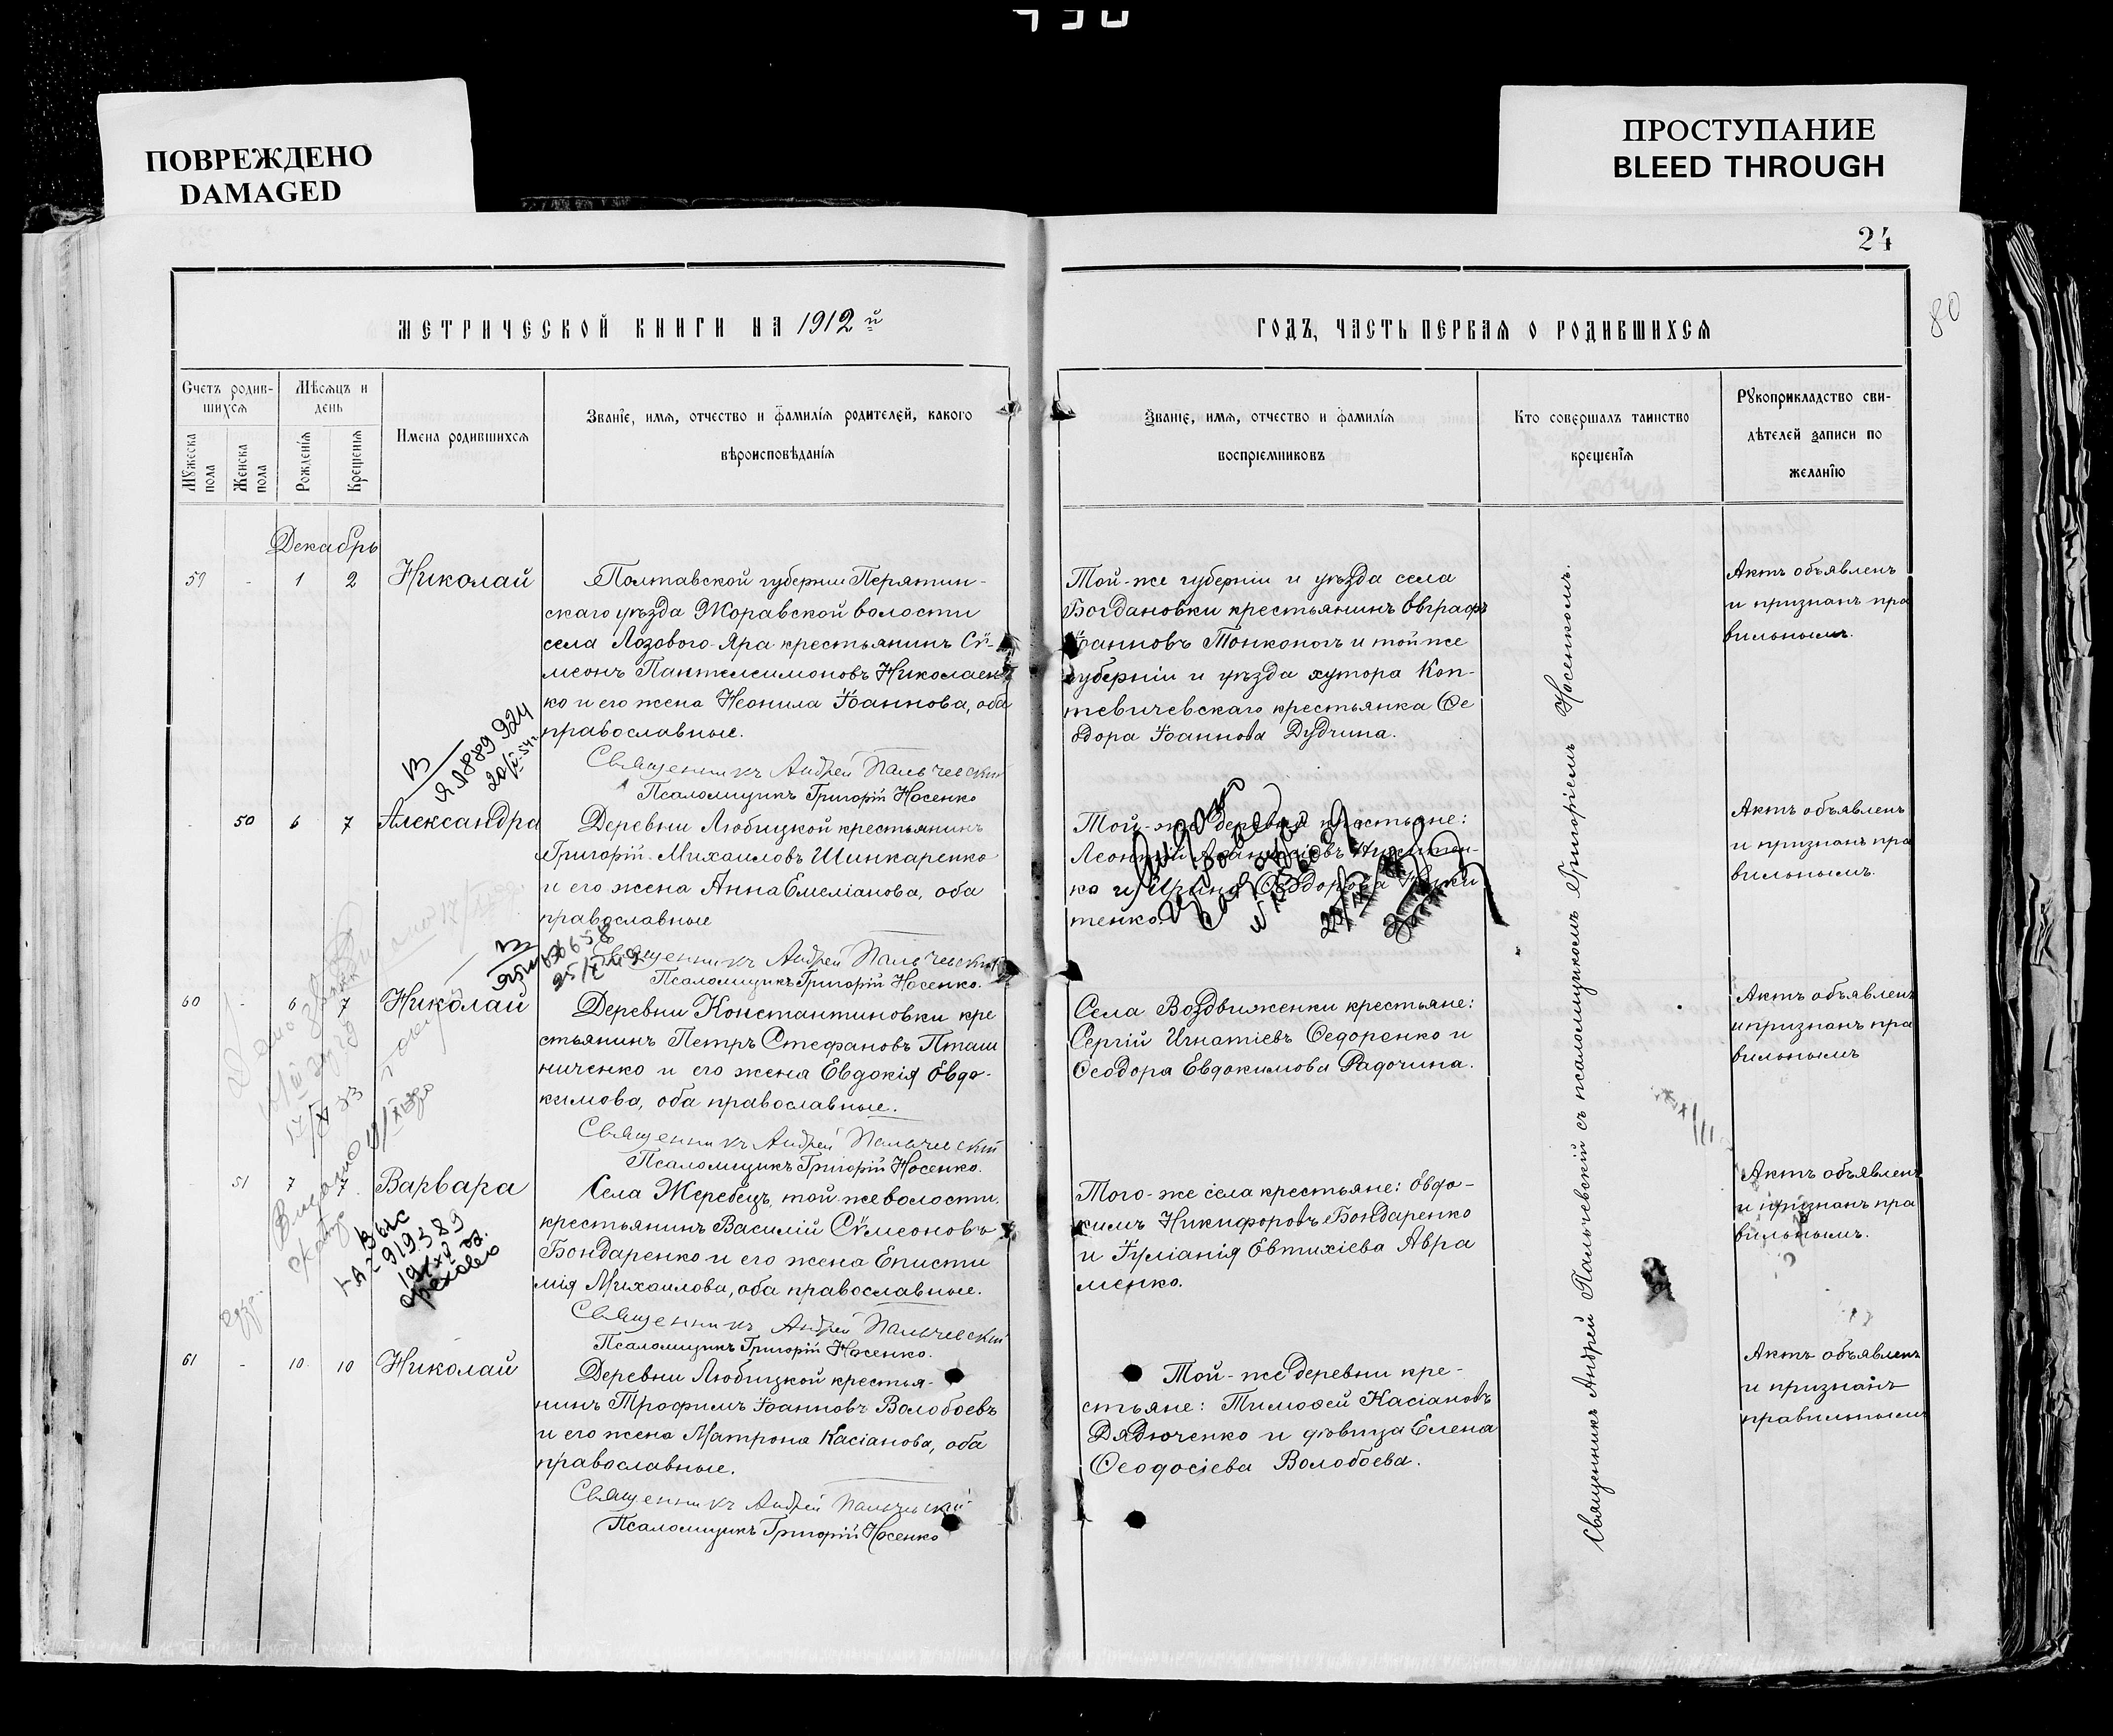 ПОВРЕЖДЕНО
DAMAGED
ПРОСТУПАНИЕ
BLEED THROUGH
24
80
МЕТРИЧЕСКОЙ КНИГИ НА 1912й
ГОДЪ, ЧАСТЬ ПЕРВАЯ О РОДИВШИХСЯ
Счетъ родив-
шихся
Мѣсяцъ и
день
Мужеска пола
Женска пола
Рожденія
Крещенія
Имена родившихся
Званіе, имя, отчество и фамилія родителей, какого
вѣроисповѣданія
Званіе, имя, отчество и фамилія
воспріемниковъ
Кто совершалъ таинство
крещенія
Рукоприкладство сви-
дѣтелей записи по
желанію
Декабрь
59 - 1 2 Николай
Полтавской губерніи Пирятин-
скаго уѣзда Жоравской волости
села Лозового-Яра крестьянинъ Сѵ-
меонъ Пантелеимоновъ Николаен
ко и его жена Неонила Іоаннова, оба
православные.
Священникъ Андрей Пальчевскій
Псаломщикъ Григорій Носенко
Той-же губерніи и уѣзда села
Богдановки крестьянинъ Евграфъ
Іоанновъ Тонконогъ и той же
губерніи и уѣзда хутора Коп-
тевичевскаго крестьянка Ѳе
одора Іоаннова Дудчина.
Актъ объявленъ
и признанъ пра
вильнымъ.
20/V-54г.
- 50 6 7 Александра
Деревни Любицкой крестьянинъ
Григорій Михаиловъ Шинкаренко
и его жена Анна Емеліанова, оба
православные
Священникъ Андрей Пальчевскій
Псаломщикъ Григорій Носенко.
Той-же деревни крестьяне:
Леонтій Никитен-
ко и Ирина Ѳеодорова Ники
тенко.
Актъ объявленъ
и признанъ пра
вильнымъ.
60 - 6 7 Николай
Деревни Константиновки кре
стьянинъ Петръ Стефановъ Пташ
ниченко и его жена Евдокія Овдо-
кимова, оба православные.
Священникъ Андрей Пальчевскій
Псаломщикъ Григорій Носенко.
Села Воздвиженки крестьяне:
Сергій Игнатіевъ Ѳедоренко и
Ѳеодора Евдокимова Радочина.
Актъ объявленъ
и признанъ пра
вильнымъ
- 51 7 7 Варвара
Села Жеребецъ, той же волости,
крестьянинъ Василій Сѵмеоновъ
Бондаренко и его жена Еписти
мія Михаилова, оба православные.
Священникъ Андрей Пальчевскій
Псаломщикъ Григорій Носенко.
Того-же села крестьяне: Овдо-
кимъ Никифоровъ Бондаренко
и Іуліанія Евтихіева Авра
менко.
Актъ объявленъ
и признанъ пра
вильнымъ.
61 - 10 10 Николай
Деревни Любицкой крестья-
нинъ Трофимъ Іоанновъ Волобоевъ
и его жена Матрона Касіанова, оба
православные.
Священникъ Андрей Пальчевскій
Псаломщикъ Григорій Носенко
Той-же деревни кре-
стьяне: Тимоѳей Касіановъ
Дядюченко и дѣвица Елена
Ѳеодосіева Волобоева.
Актъ объявленъ
и признанъ
правильнымъ
Священникъ Андрей Пальчевскій съ псаломщикомъ Григоріемъ Носенкомъ.